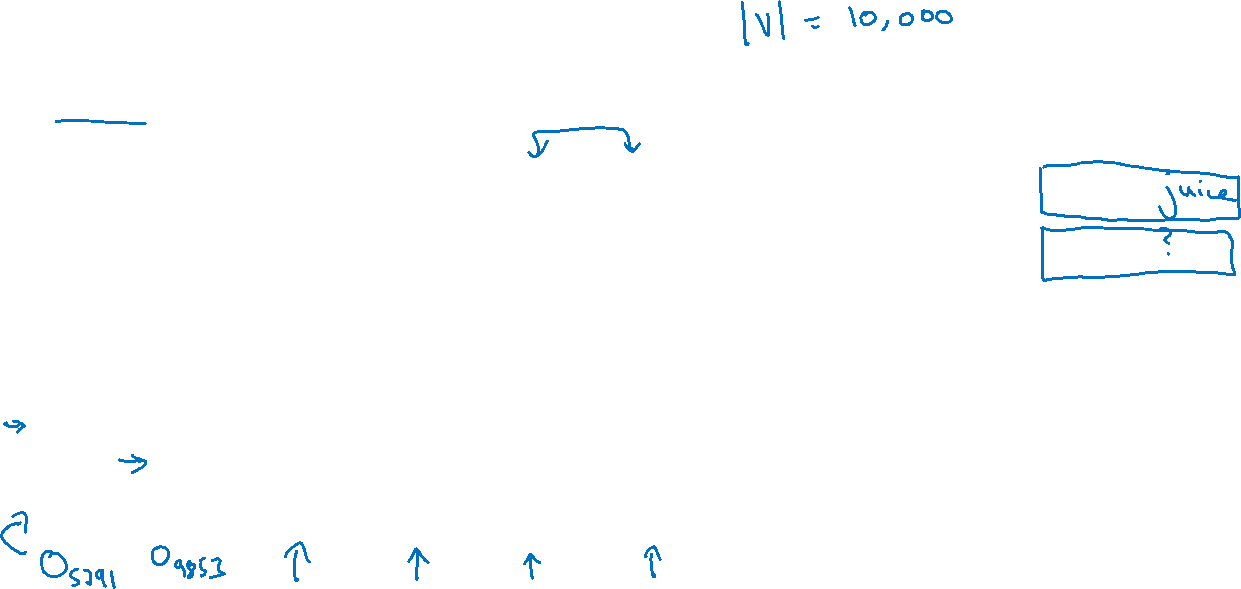 |V| = 10,000
juice
?
O5391 O9853